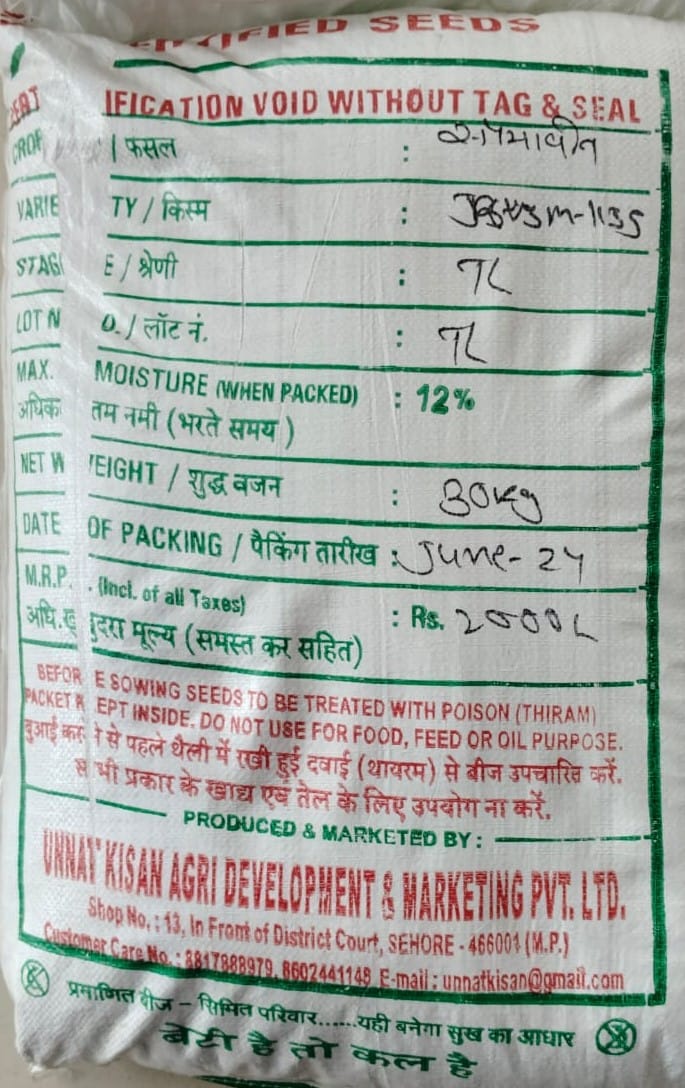 CERTIFIED SEEDS
CERTIFICATION VOID WITHOUT TAG & SEAL
CROP / फसल : सोयाबीन
VARIETY / किस्म :
STAGE / श्रेणी : TL
LOT NO. / लॉट नं. : TL
MAX. MOISTURE (WHEN PACKED) : 12%
अधिकतम नमी (भरते समय)
NET WEIGHT / शुद्ध वजन : 30kg
DATE OF PACKING / पैकिंग तारीख : June-24
M.R.P. (Incl. of all Taxes) : Rs.
अधि.खुदरा मूल्य (समस्त कर सहित)
BEFORE SOWING SEEDS TO BE TREATED WITH POISON (THIRAM)
PACKET KEPT INSIDE. DO NOT USE FOR FOOD, FEED OR OIL PURPOSE.
बुआई करने से पहले थैली में रखी हुई दवाई (थायरम) से बीज उपचारित करें.
सभी प्रकार के खाद्य एवं तेल के लिए उपयोग ना करें.
PRODUCED & MARKETED BY :
UNNAT KISAN AGRI DEVELOPMENT & MARKETING PVT. LTD.
Shop No. : 13, In Front of District Court, SEHORE - 466001 (M.P.)
Customer Care No. : 8817888979, 8602441149, E-mail : unnatkisan@gmail.com
प्रमाणित बीज - सिमित परिवार......यही बनेगा सुख का आधार
बेटी है तो कल है